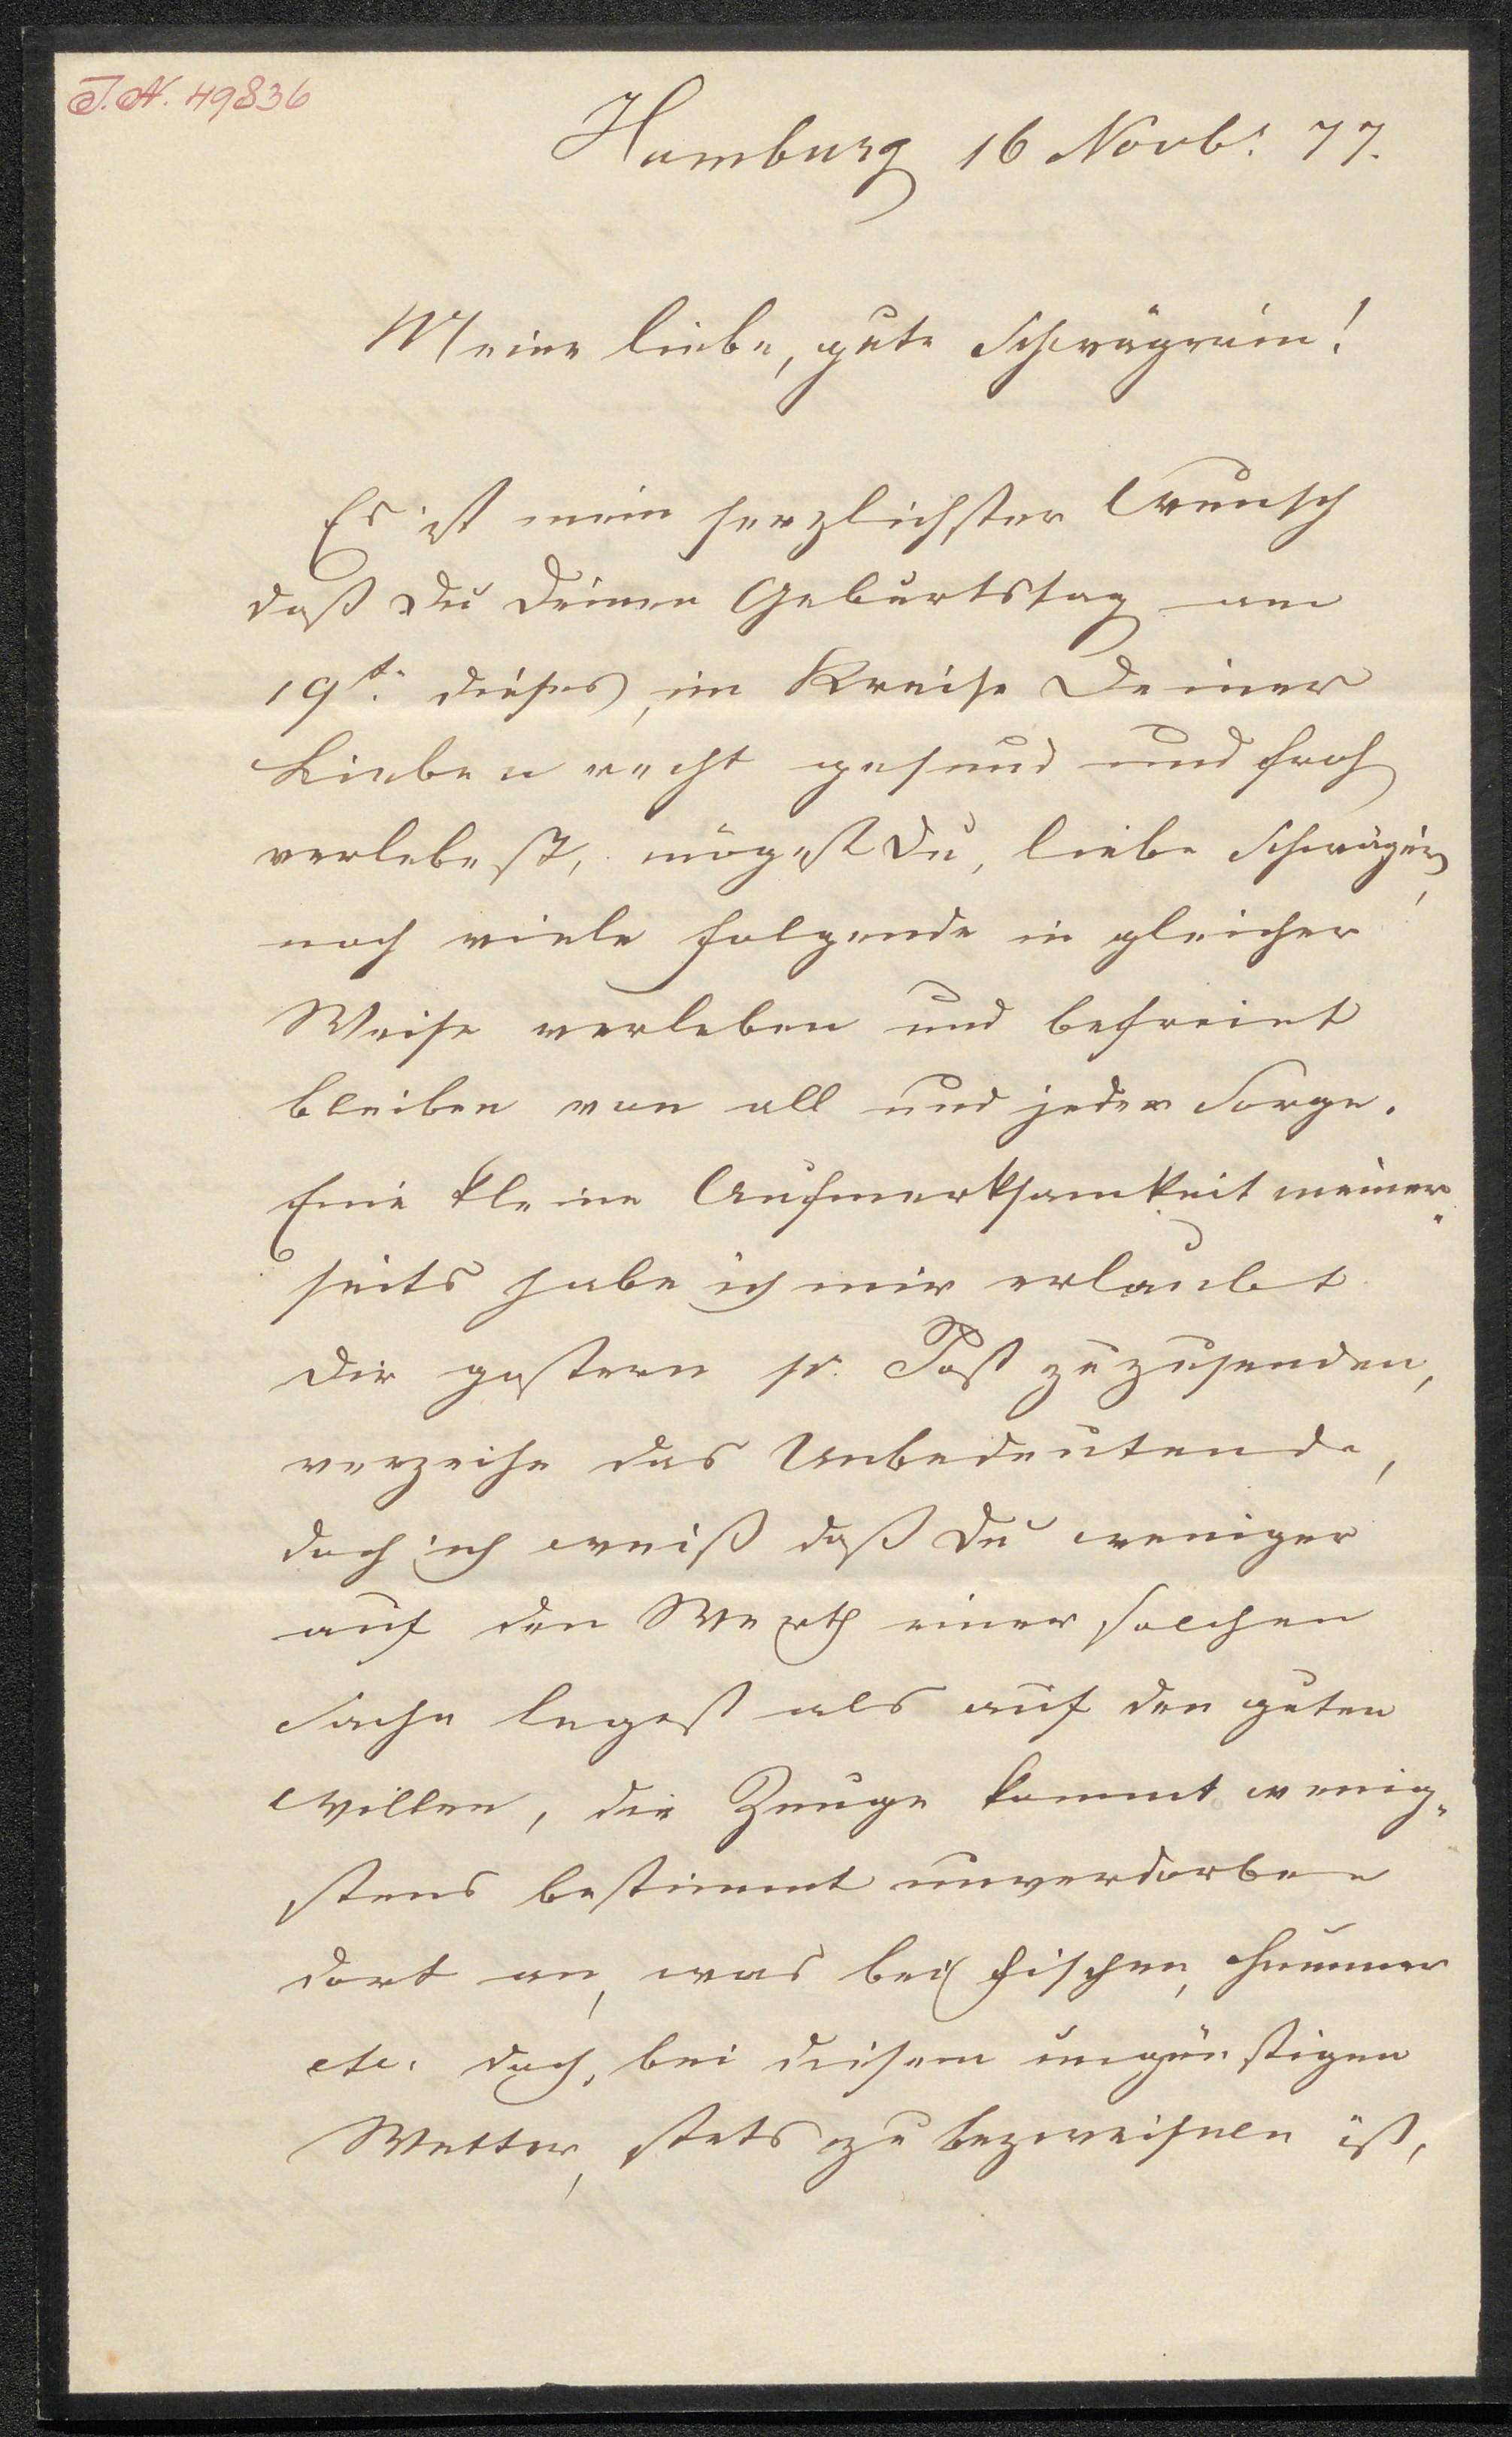 J. N. 49836
Hamburg 16 Novbr. 77.
Meine liebe, gute Schwägerin!
Es ist mein herzlichster Wunsch
daß Du Deinen Geburtstag am
19t. dieses, im Kreise Deiner
Lieben recht gesund und froh
verlebest, mögest Du, liebe Schwägerin,
noch viele folgende in gleicher
Weise verleben und befreit
bleiben von all und jeder Sorge.
Eine kleine Aufmerksamkeit meiner„
seits habe ich mir erlaubt
Dir gestern pr. Post zuzusenden,
verzeihe das Unbedeutende,
doch ich weiß daß Du weniger
auf den Werth einer solchen
Sache legest als auf den guten
Willen, die Zunge kommt wenig„
stens bestimmt unverdorben
dort an, was bei Fischen, Hummer
etc. doch, bei diesem ungünstigen
Wetter, stets zu bezweifeln ist,